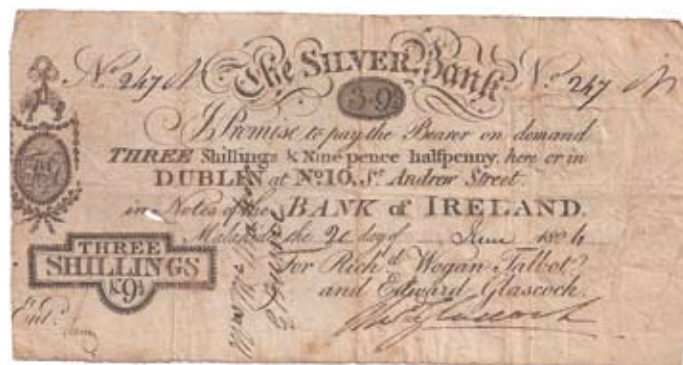 The SILVER Bank
No. 247 N No. 247 N
3-9½
I Promise to pay the Bearer on demand
THREE Shillings & Nine pence halfpenny, here or in
DUBLIN at No. 10, St. Andrew Street.
in Notes of the BANK of IRELAND.
Malahide the 20 day of June 1804
THREE
SHILLINGS
& 9½
For Richd. Wogan Talbot
and Edward Glascock.
Entd.
Edwd. Glascock